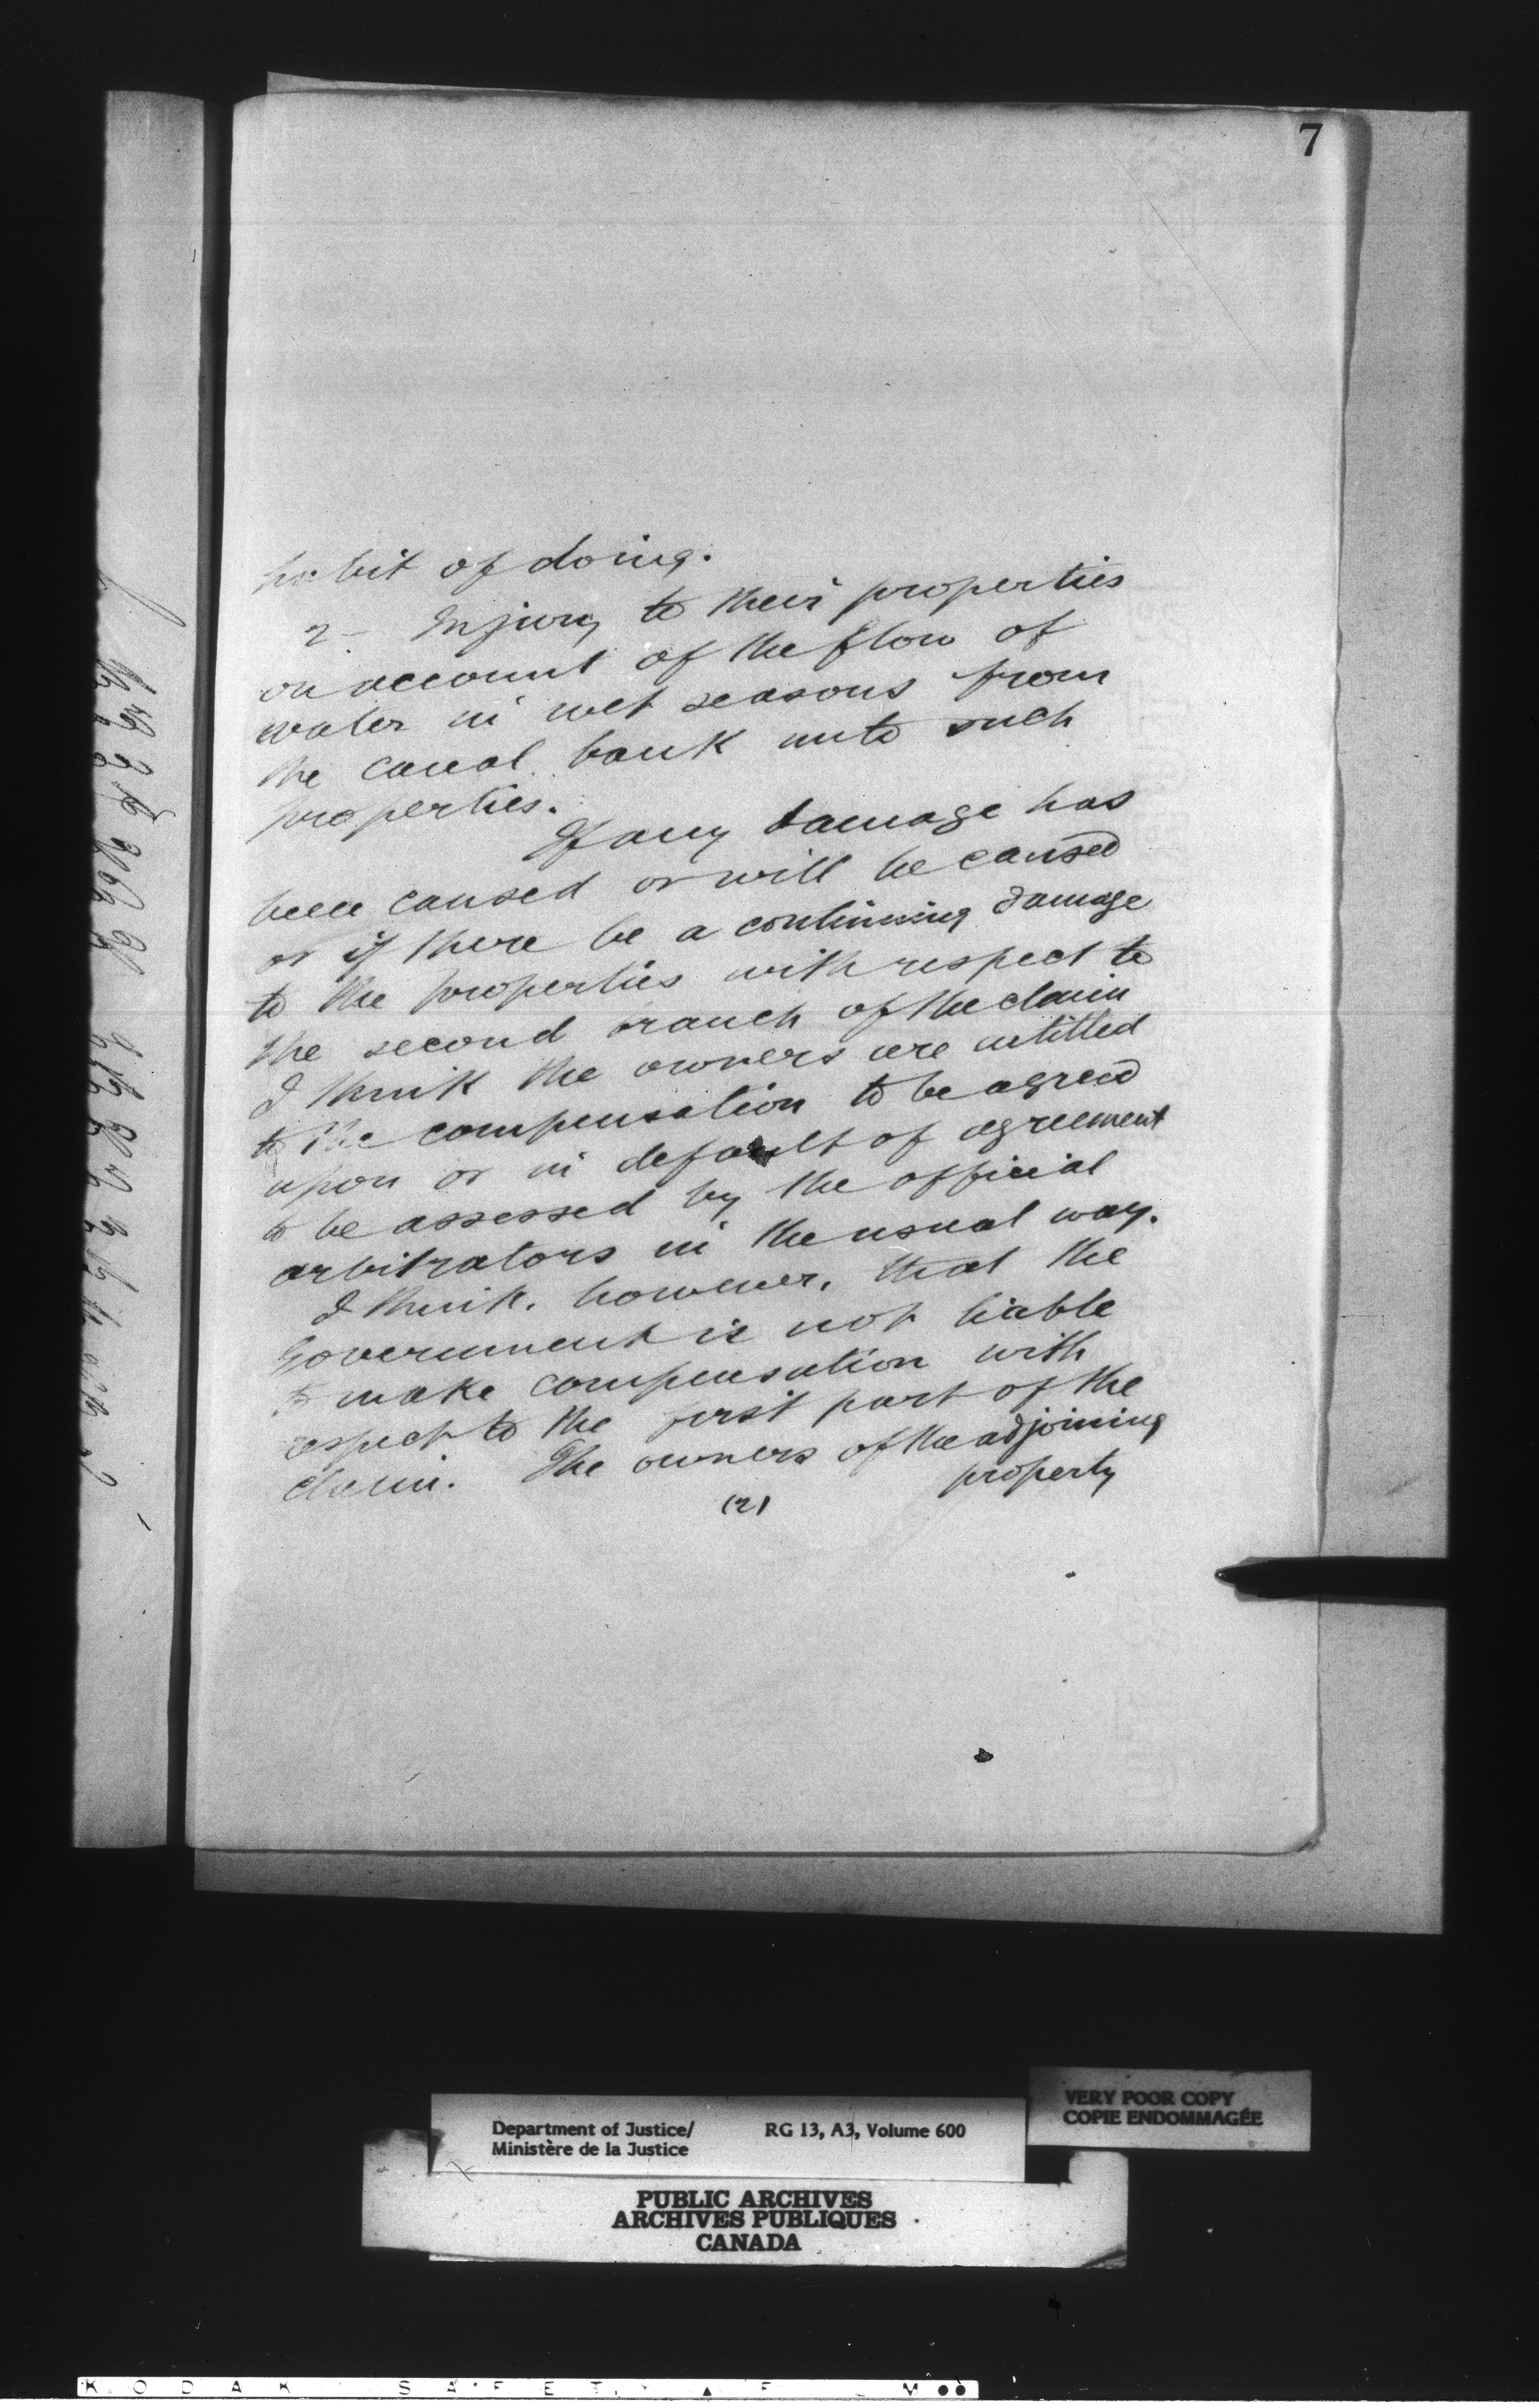 7
habit of doing.
2- Injury to their properties
on account of the flow of
water in wet seasons from
the canal bank unto such
properties.
If any damage has
been caused or will be caused
or if there be a continuing damage
to the properties with respect to
the second branch of the claim
I think the owners are entitled
to the compensation to be agreed
upon or in default of agreement
to be assessed by the official
arbitrators in the usual way.
I think, however, that the
Government is not liable
to make compensation with
respect to the first part of the
claim. The owners of the adjoining
property
(2)
VERY POOR COPY
COPIE ENDOMMAGÉE
Department of Justice/ RG 13, A3, Volume 600
Ministère de la Justice
PUBLIC ARCHIVES
ARCHIVES PUBLIQUES
CANADA
KODAK SAFETY FILM